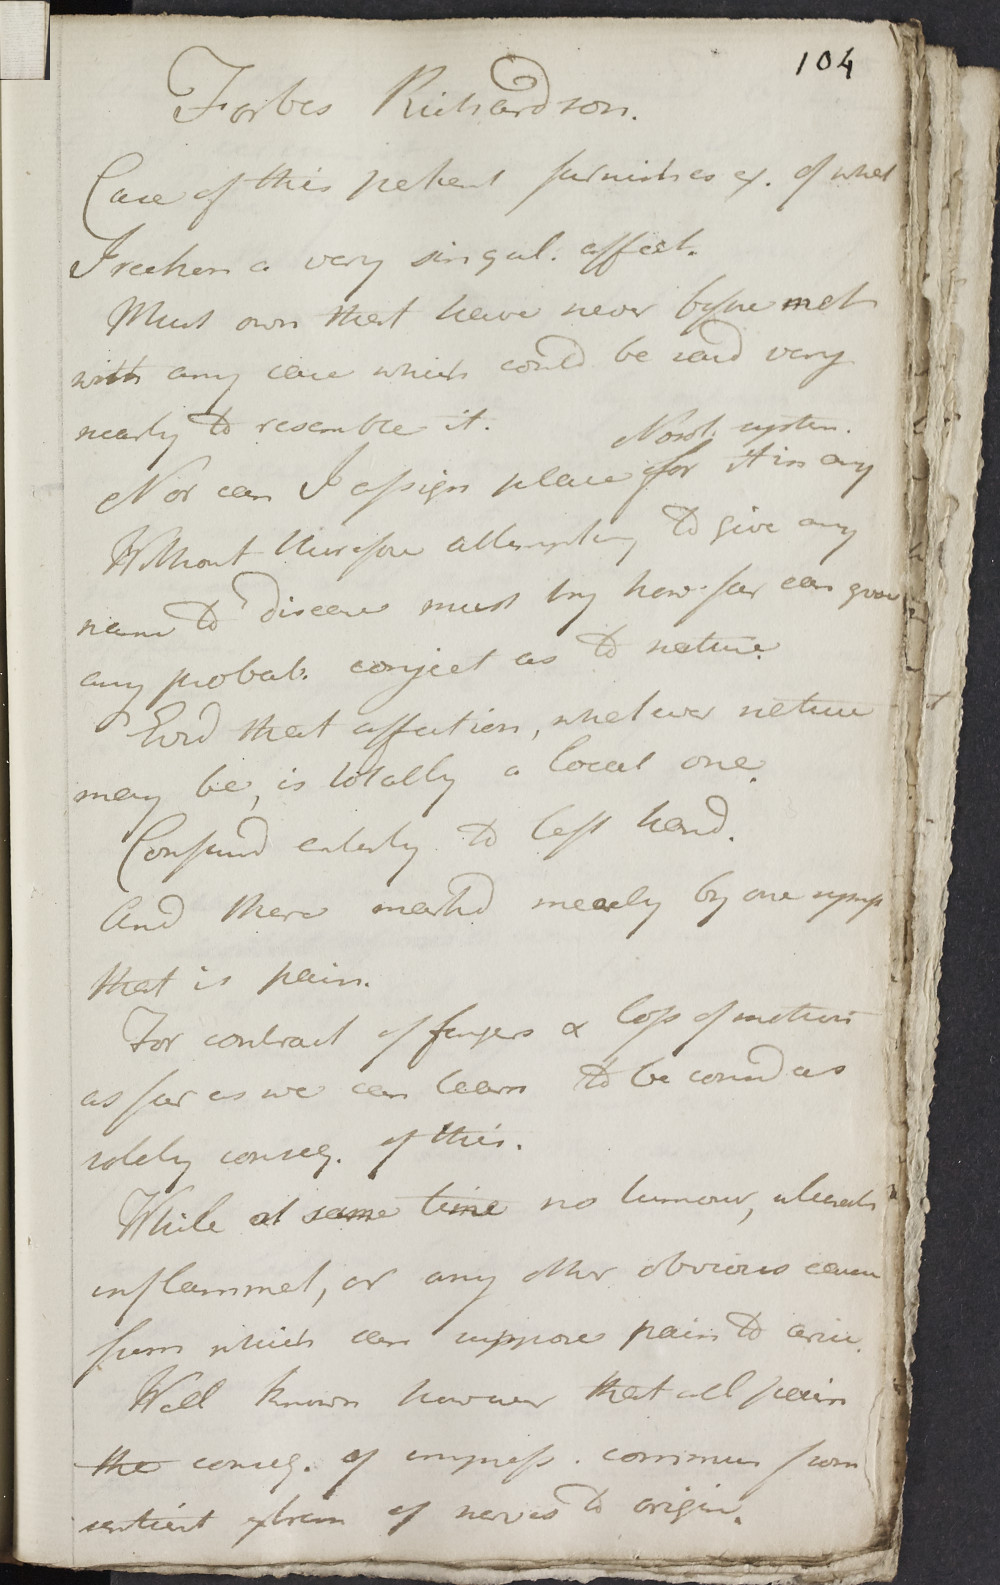 104
Forbes Richardson.
Case of this patient furnishes ex. of what
I reckon a very singul. affect.
Must own that have never before met
with any case which could be said very
nearly to resemble it.
Nosol. system.
Nor can I assign place for it in any
Without therefore attempting to give any
name to disease must try how far can
any probab. conject as to nature.
Evid that affection, whatever nature
may be, is totally a local one.
Confined entirely to left hand.
And there marked merely by one symp
that is pain.
For contract of fingers & loss of motion
as far as we can learn to be consid as
solely conseq. of this.
While at same time no tumour, ulcerat
inflammat, or any other obvious cause
from which can suppose pain to arise.
Well known however that all pain
the conseq. of impress. commun from
sentient extrem of nerves to origin.